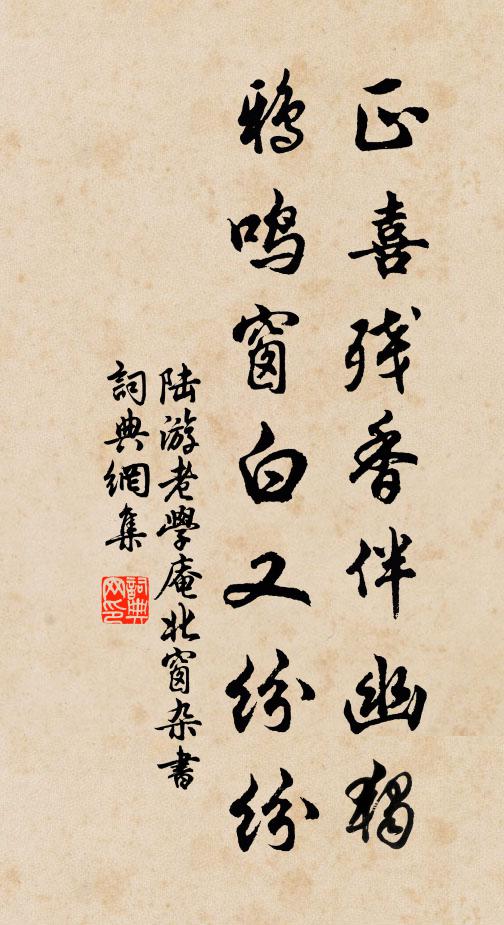 正喜残香伴幽独
鸦鸣窗白又纷纷
陆游老學庵北窗杂書
詞典網集
詞典网印